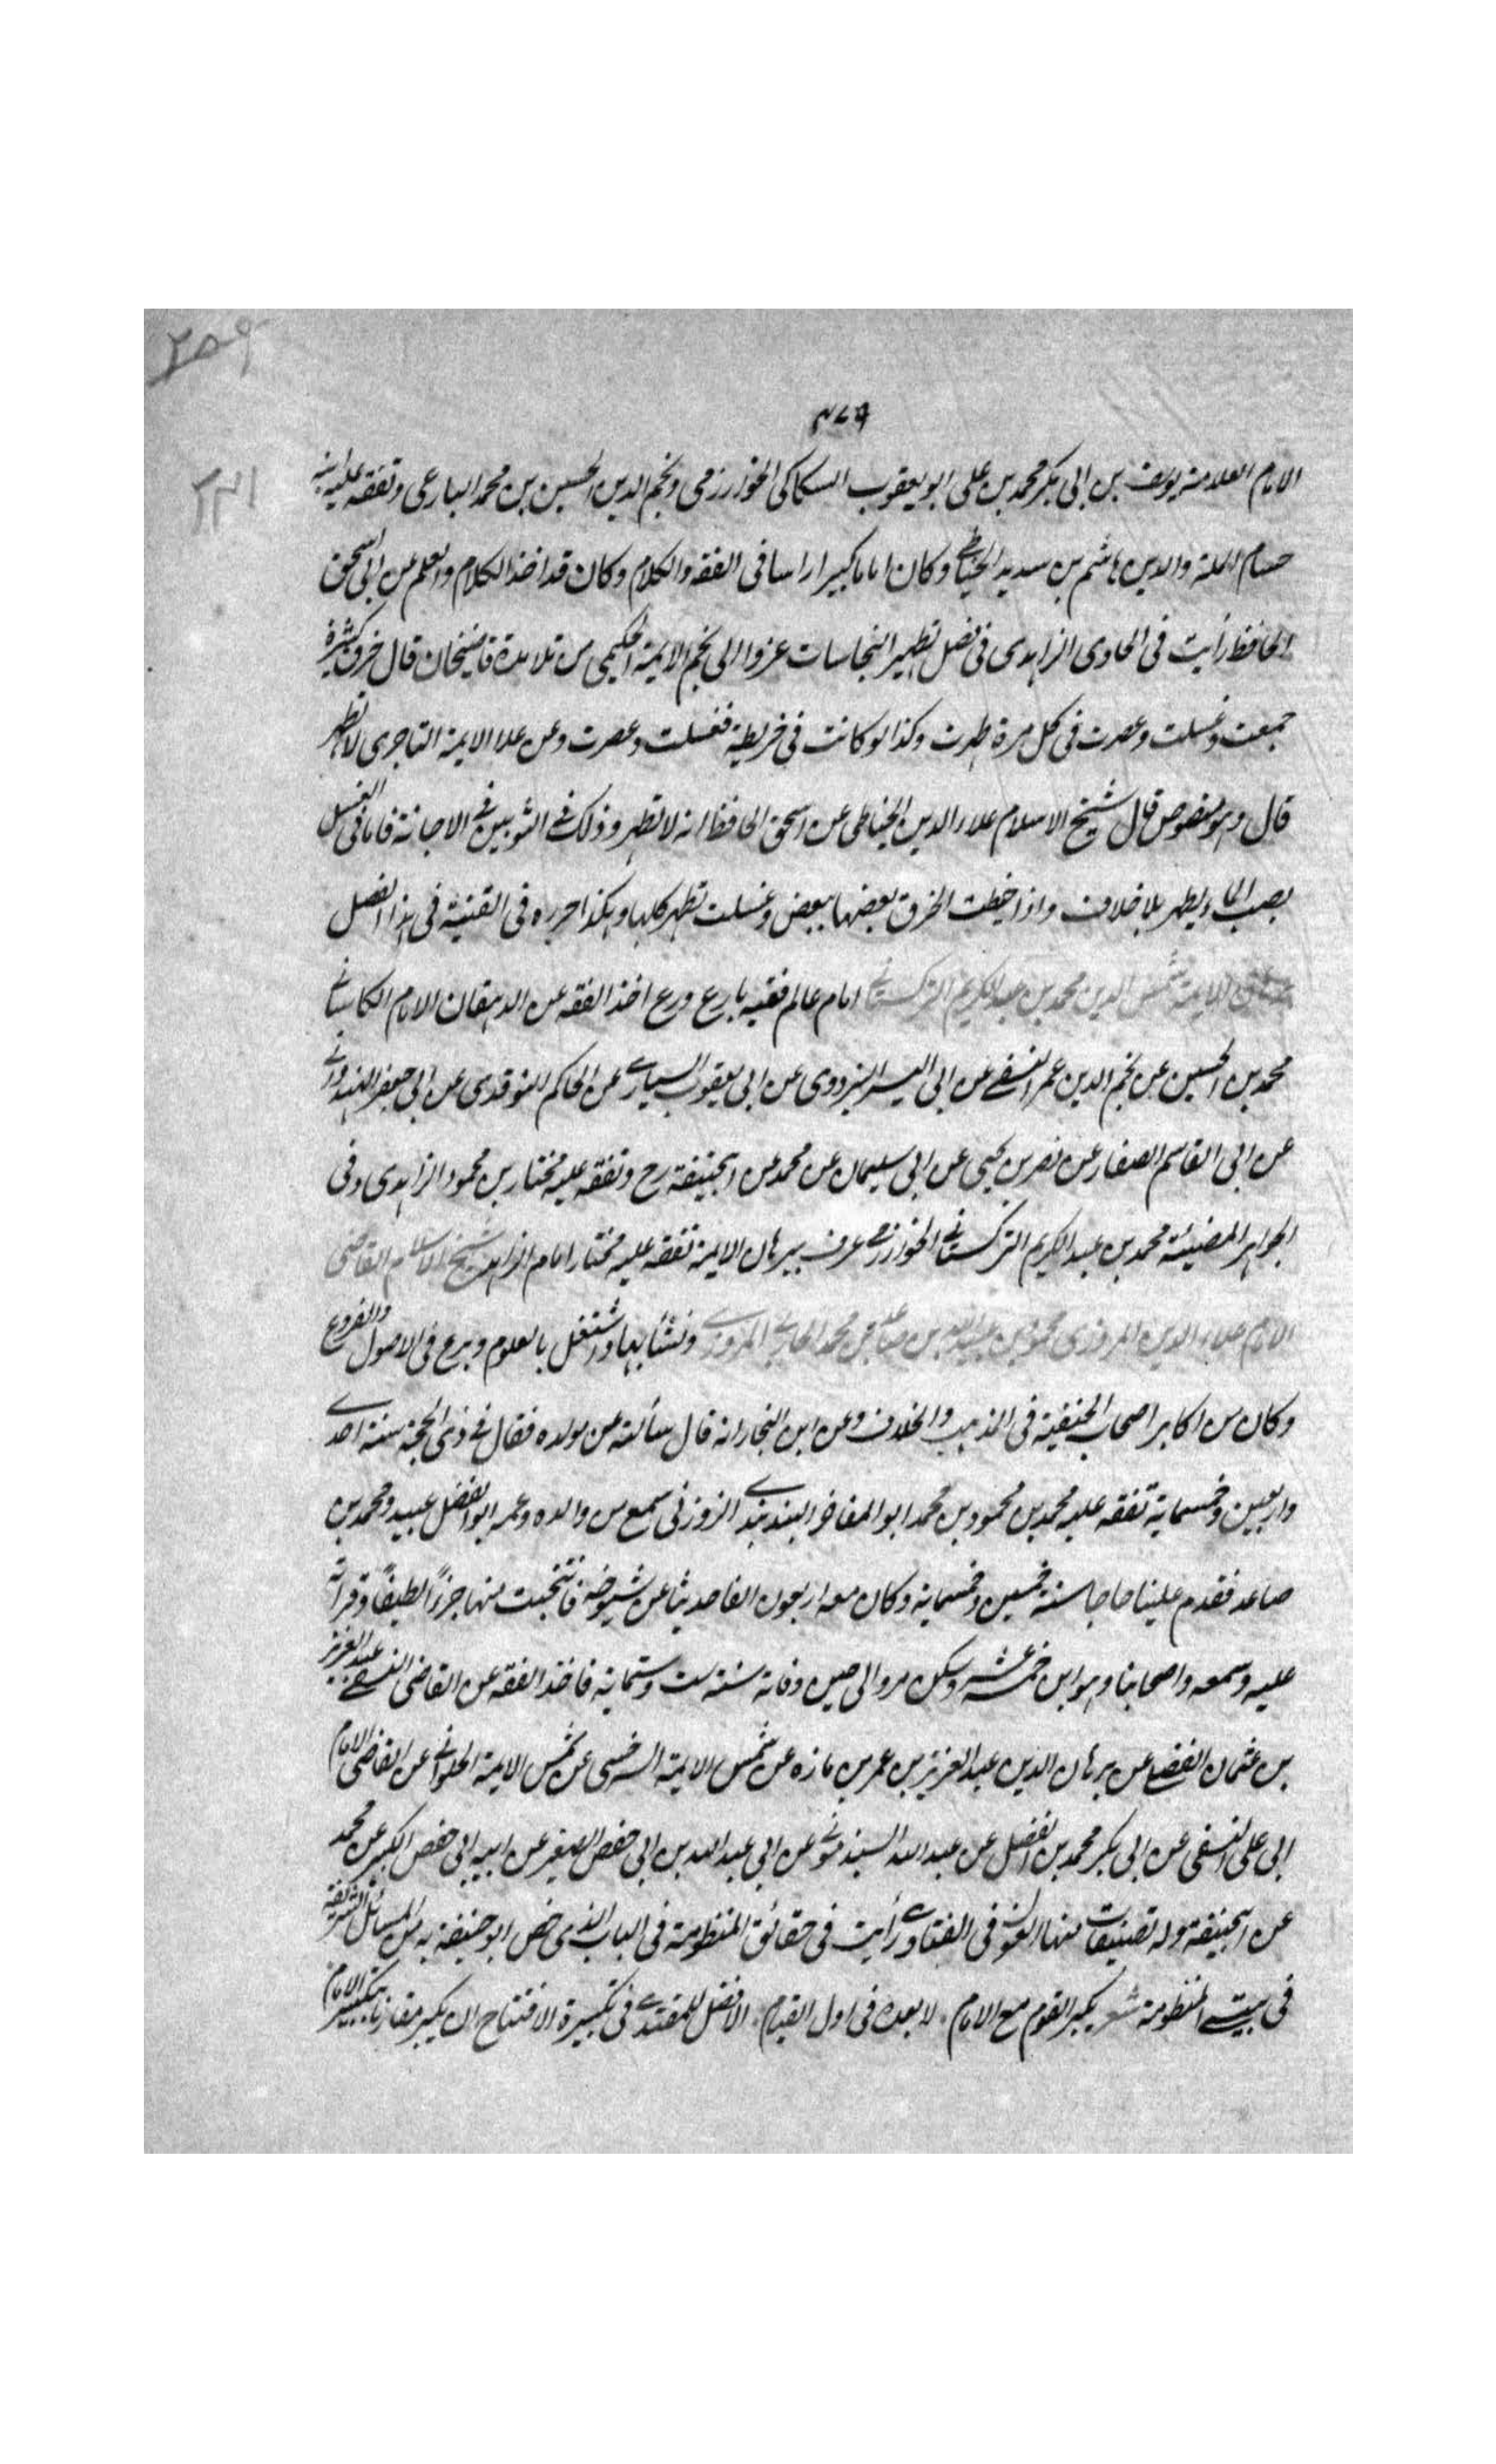 ٢٥٩
٤٧٩
٢٣١
الامام العلامة يوسف بن ابى بكر محمد بن على ابو يعقوب السكاكى الخوارزمى ونجم الدين الحسين بن محمد البارعى وتفقه عليه ابنه
حسام الملة والدين هاشم بن سديد الخياطى وكان اماما كبيرا راسا فى الفقه والكلام وكان قد اخذ الكلام والعلم عن ابى اسحق
الحافظ رأيت فى الحاوى الزاهدى فى فصل تطهير النجاسات عزوا الى نجم الايمة الحكيمى من تلامذة قاضيخان قال خرق كثيرة
جمعت وغسلت وعصرت فى كل مرة طهرت وكذا لو كانت فى خريطة فغسلت وعصرت وعن علا الايمة التاجرى لا تطهر
قال وهو منصوص قال شيخ الاسلام علاء الدين الخياطى عن اسحق الحافظ انه لا تطهر وذلك فى الثوبين فى الاجانة فاما فى الغسل
بصب الماء يطهر بلا خلاف واذا خيطت الخرق بعضها ببعض وغسلت تطهر كلها وهكذا حرره فى القنية فى هذا الفصل
الايمة شمس الدين محمد بن عبد الكريم التركستانى امام عالم فقيه بارع ورع اخذ الفقه عن الدهقان الامام الكاسانى
محمد بن الحسين عن نجم الدين عمر النسفى عن ابى اليسر البزدوى عن ابى يعقوب السيارى عن الحاكم النوقدى عن ابى جعفر الهندوانى
عن ابى القاسم الصفار عن نصر بن يحيى عن ابى سليمان عن محمد عن ابيحنيفة رح وتفقه عليه مختار بن محمود الزاهدى وفى
الجواهر المضيئة محمد بن عبد الكريم التركستانى الخوارزمى عرف ببرهان الايمة تفقه عليه مختار امام الزاهد شيخ الاسلام القاضى
الامام علاء الدين المروزى محمود بن عبيد الله بن صاعد بن محمد الحارثى المروزى ونشأ بها واشتغل بالعلوم وبرع فى الاصول والفروع
وكان من اكابر اصحاب الحنفية فى المذهب والخلاف وعن ابن النجار انه قال سألته عن مولده فقال فى ذى الحجة سنة احدى
واربعين وخمسماية تفقه عليه محمد بن محمود بن محمد ابو المفاخر السنديدى الزوزنى سمع من والده وعمه ابو الفضل عبيد ومحمد بن
صاعد فقدم علينا حاجا سنة خمسين وخمسماية وكان معه اربعون الفا حديثا عن شيوخه فانتخبت منها جزءاً لطيفاً وقراته
عليه وسمعه واصحابنا وهو ابن خمسة عشر وسكن مرو الى حين وفاته سنة ست وستماية فاخذ الفقه عن القاضى النسفى عبد العزيز
بن عثمان الفضلى عن برهان الدين عبد العزيز بن عمر بن مازه عن شمس الايمة السرخسى عن شمس الايمة الحلوانى عن القاضى الامام
ابى على النسفى عن ابى بكر محمد بن الفضل عن عبد الله السبذمونى عن ابى عبد الله بن ابى حفص الصغير عن ابيه ابى حفص الكبير عن محمد
عن ابيحنيفة وله تصنيفات منها العون فى الفتاوى رأيت فى حقائق المنظومة فى الباب الذى خص ابو حنيفة به من المسائل الشريفة
فى بيت المنظومة شعر يكبر القوم مع الامام ۰ لا بعده فى اول القيام ۰ الافضل للمقتدى فى تكبيرة الافتتاح ان يكبر مقارنا بتكبير الامام